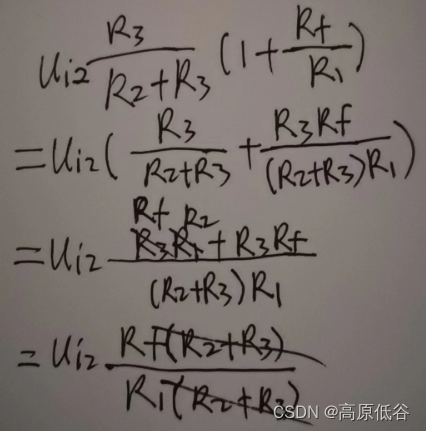 u_{i2} \frac{R_3}{R_2+R_3} (1+\frac{R_f}{R_1})
=u_{i2} (\frac{R_3}{R_2+R_3}+\frac{R_3R_f}{(R_2+R_3)R_1})
R_f R_2
=u_{i2} \frac{R_3R_1+R_3R_f}{(R_2+R_3)R_1}
=u_{i2} \frac{R_f(R_2+R_3)}{R_1(R_2+R_3)}
CSDN @高原低谷